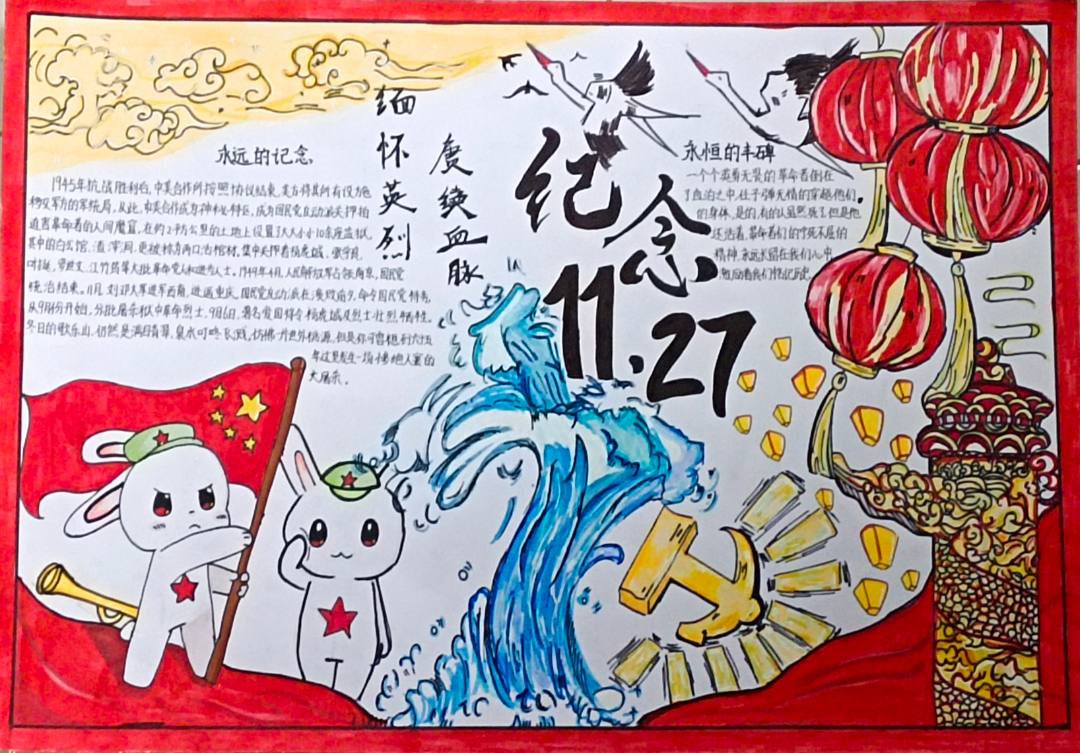 缅怀英烈
赓续血脉
纪念
11.27
永远的记念
1945年抗战胜利后,中美合作所按照协议结束,美方将其所有设
军方的军统局,从此,中美合作成为神秘特区,成为国民党反动派关押
迫害革命者的人间魔窟,在约 公里的土地上设置了大大小小10余座监狱,
其中的白公馆、渣滓洞,更被称为两口活棺材,集中关押着杨虎城、张学良、
叶挺、罗世文、江竹筠等大批革命党人和进步人士。1949年4月人民解放军占领南京,国民党
统治结束。11月,刘邓大军进军西南,进逼重庆,国民党反动派在溃败前夕,命令国民党特务,
从9月份开始,分批屠杀狱中革命烈士。9月6日,著名爱国将领杨虎城及烈士壮烈牺牲。
冬日的歌乐山,仍然是满目青翠,泉水叮咚飞溅,仿佛 世外桃源,但是你可曾想到六十五
年这里发生一场惨绝人寰的
大屠杀。
永恒的丰碑
一个个英勇无畏的革命者倒在
了血泊之中,任子弹无情的穿越他们
的身体,是的,有的人虽然死了但是他
还活着,革命者们的宁死不屈的
精神,永远长留在我们心中
激励着我们铭记历史